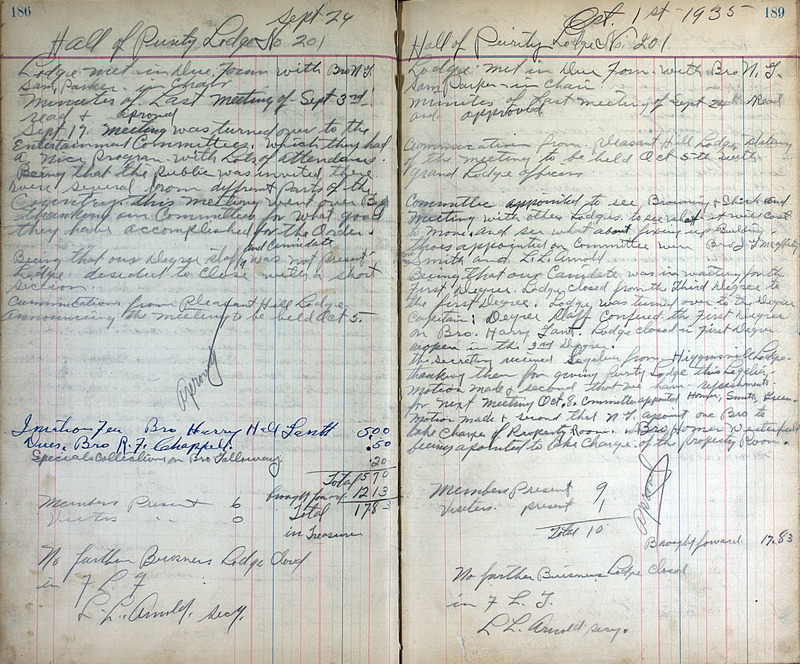 186
Sept 24
Hall of Purity Lodge No. 201
Lodge met in Due Form with Bro N.G.
Sam Parker in Chair
Minutes of Last meeting of Sept 3rd
read & aproved
Sept 17. Meeting was turned over to the
Entertainment Committee. which they had
a Nice Program with Lots of attendence.
Beeing that the public was invited there
were several from diffrent parts of the
this meeting went over Big
thanking our Committee for what good
they have accomplished for the Order.
and Canidate
Beeing that our Degree staff was not present
Lodge desided to close with a short
section.
from Pleasant Hill Lodge
announcing the meeting to be held Oct 5.
Aproved
Initiation Fee Bro Harry Hill Lantt 5.00
Dues. Bro R. F. Chappell. .50
Special Collection on Bro Talloway .20
Total 5 70
brought forward 12 13
Members Present 6
Total 17.83
Visiters " " 0
in Treasurer
No further Buisness Lodge closed
in F. L. T
L. L. Arnold. secy.
Oct. 1st - 1935
189
Hall of Purity Lodge No. 201
Lodge met in Due Form with Bro N. G.
Sam Parker in Chair
minutes of Last meeting of Sept 24 Read
and approved
from Pleasant Hill Lodge stateing
of the meeting to be held Oct 5th with
Grand Lodge officers
Committee appointed to see Browning &
Meeting with other Lodges to see what it will cost
to move. and see what about fixing up Building.
those appointed on Committee were Bro
Smith and L. L. Arnold
Beeing that our Canidate was in waiting for the
First Degree. Lodge closed from the Third Degree to
the first Degree. Lodge was turned over to the Degree
Captain; Degree staff Confered the First Degree
on Bro. Harry Lant. Lodge closed in First Degree
reopen in the 3rd Degree.
the secretary recieved from Higginsville Lodge
thanking them for giving Purity Lodge this
Motion made & second that we have refreshments
for next Meeting Oct 8. Committe appointed Homer, Smith,
Motion made & second that N. G. apoint one Bro to
take Charge of Property Room. Bro Homer
beeing apointed to take Charge of the property Room.
Aproved
Members Present 9
Visiters. present 1
Total 10
Brought forward 17.83
No further Buisness Lodge closed
in F. L. T.
L L. Arnold secy.